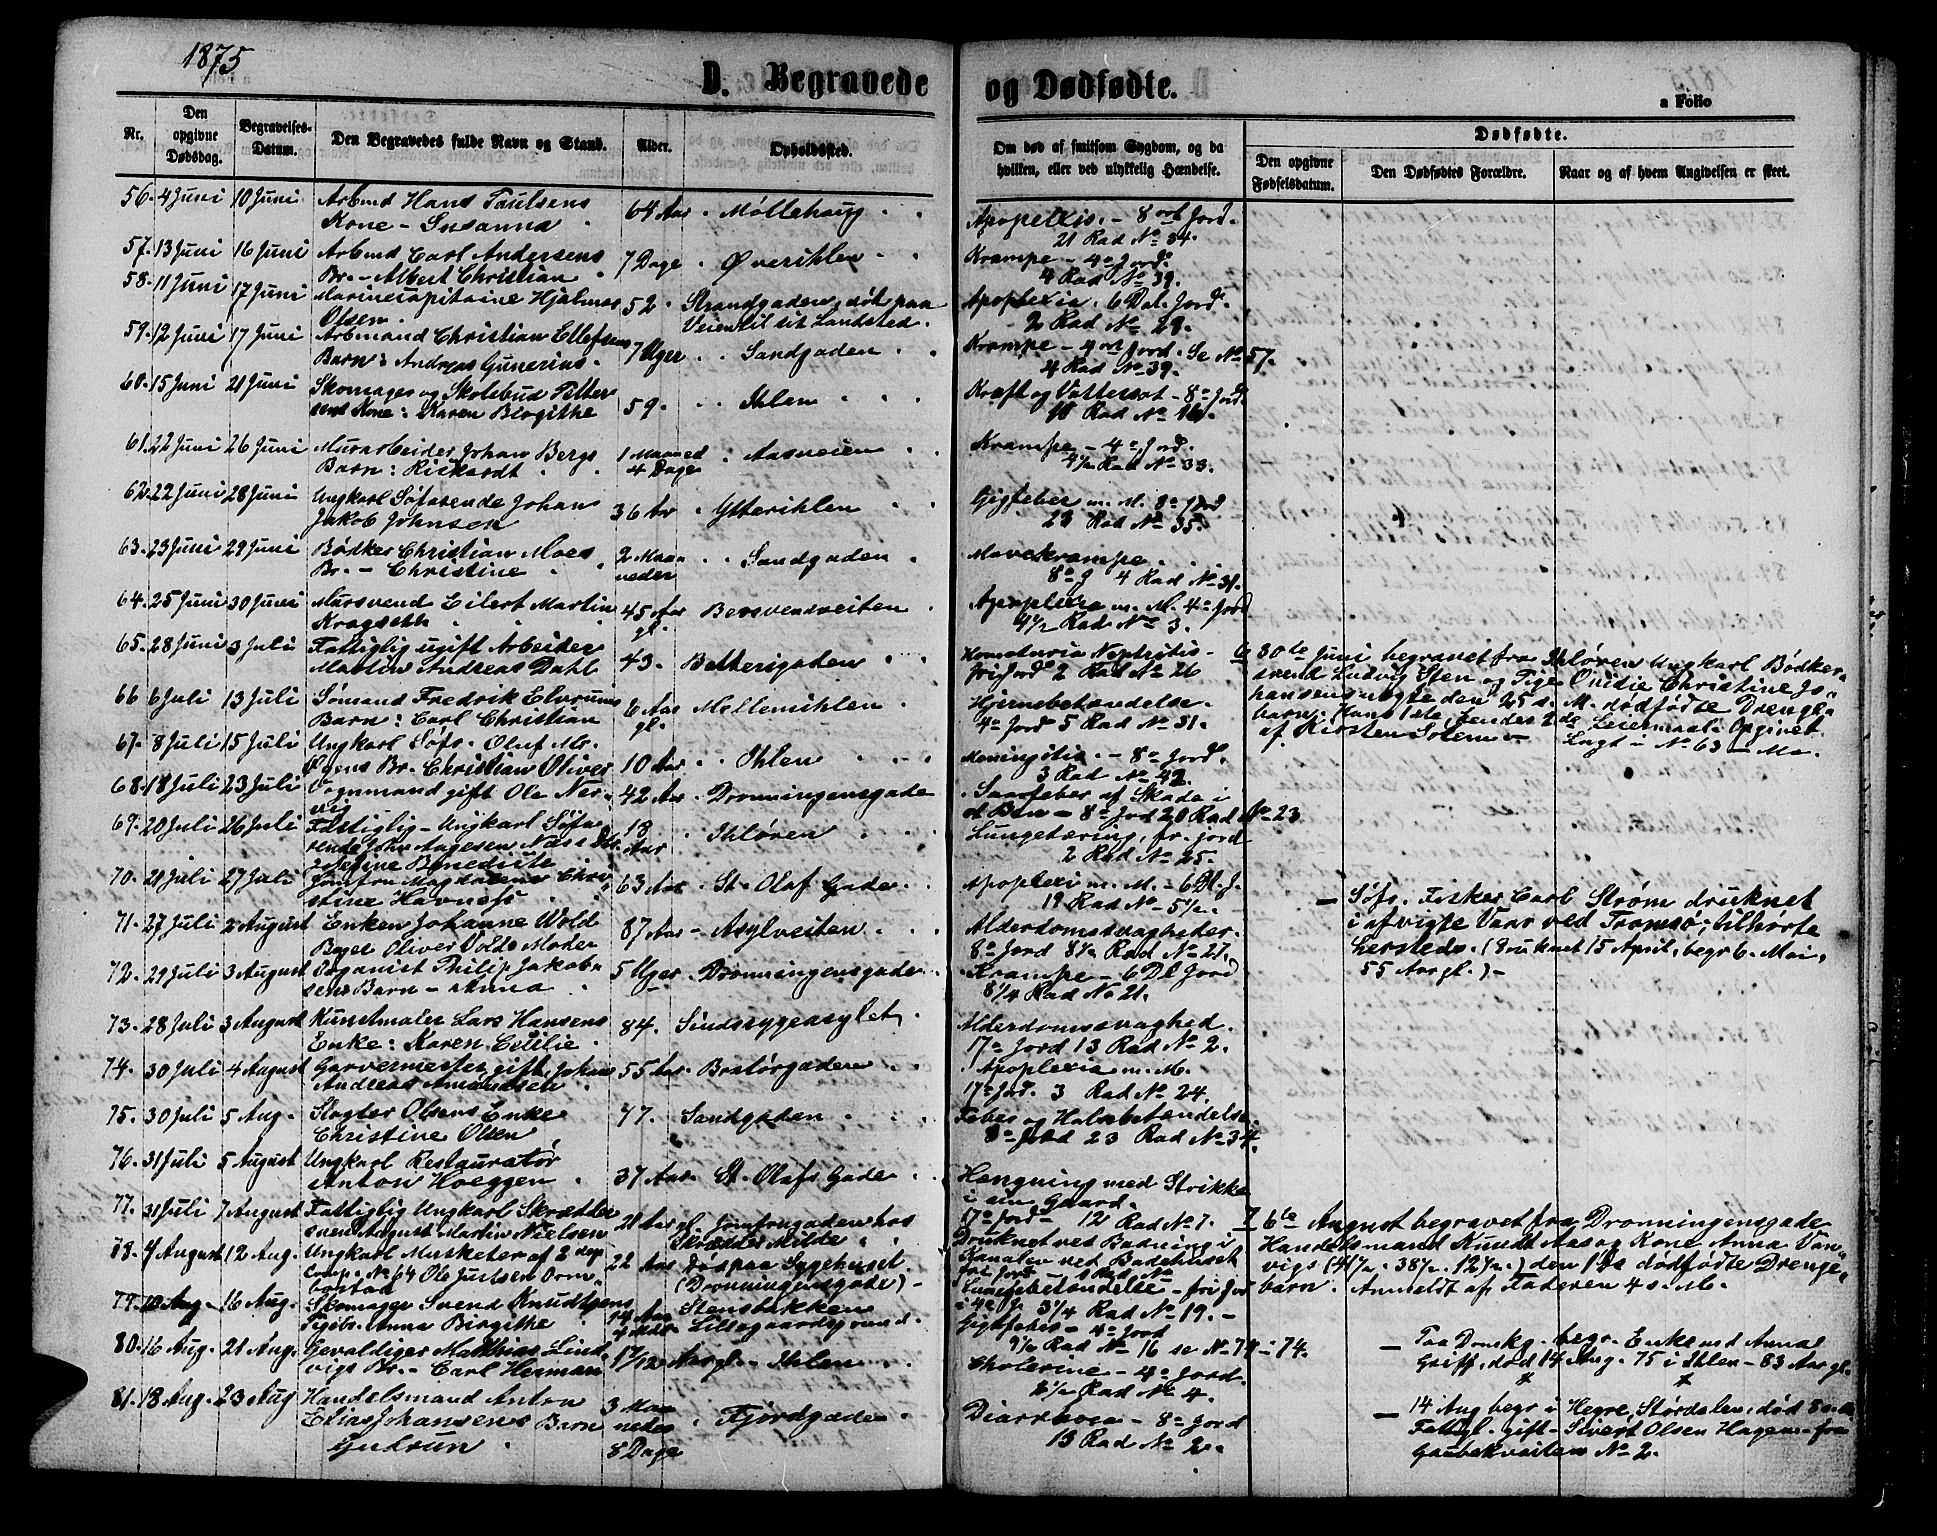 1875
D. Begravede og Dødfødte.
a Folio
Nr.
Den opgivne Dødsdag.
Begravelses-Datum.
Den Begravedes fulde Navn og Stand.
Alder.
Opholdssted.
Om død af smitsom Sygdom, og da hvilken, eller ved ulykkelig Hændelse.
Dødfødte.
Den opgivne Fødselsdatum.
Den Dødfødtes Forældre.
Naar og af hvem Angivelsen er skeet.
56. 4 Juni 10 Juni Arbmd Hans Paulsens 64 Aar Møllehaug Apoplexis. – 8 Jord.
Kone – Susanna 21 Rad No 34.
57. 13 Juni 16 Juni Arbmd Carl Andersens 7 Dage Øverihlen Krampe – 4 Jord.
Br. – Albert Christian 4 Rad No 39.
58. 11 Juni 17 Juni Marinecapitaine Hjalmar 52. Strandgaden, død paa Apoplexia. 6 Dal. Jord.
Olsen. Veien til sit Landsted. 2 Rad No 29.
59. 12 Juni 17 Juni Arbmand Christian Ellefsens 7 Uger Sandgaden Krampe – 4 Jord. Se No 57.
Barn: Andreas Gunerius. 4 Rad No 39.
60. 15 Juni 21 Juni Skomager og Skolebud Petter 59. Ihlen Kræft og Vattersot – 8 Jord.
sens Kone: Karen Birgithe Rad No
61. 22 Juni 26 Juni Murarbeider Johan Bergs 1 Maaned Aasveien Krampe – 4 Jord.
Barn: Rickardt 4 Dage 4½ Rad No 33.
62. 22 Juni 28 Juni Ungkarl Søfarende Johan 36 Aar Ytterihlen Gigfeber m. M. 8 Jord
Jakob Johnsen 23 Rad No 35.
63. 23 Juni 29 Juni Bødker Christian Moes 2 Maa- Sandgaden Mavekrampe
Br. – Christine neder 8 J 4 Rad No 31.
64. 25 Juni 30 Juni Mursvend Eilert Martin 45 Aar Bersvendveiten Apoplexia m. M. 4 Jord
Kragseth gl. 4½ Rad No 3.
65. 28 Juni 3 Juli Fattiglig ugift Arbeider 43. Betterigaden Hæmaturia Nephritis –
Martin Andreas Dahl fri Jord 2 Rad No 26
6 30te Juni begravet fra Ihløren Ungkarl Bødker-
svend Ludvig Sten og Pige Ovidie Christine Jo-
hansens uægte den 25 s. M. dødfødte Drenge-
barn. Hans 1ste, hendes 2de Leiermaal. Opgivet
af Kirsten Solem – Lagt i No 63 – Ma.
66 6 Juli 13 Juli Sømand Fredrik Elvrums 6 Aar Mellemihlen Hjernebetændelse.
Barn: Carl Christian gl. 4 Jord 5 Rad No 31.
67. 8 Juli 15 Juli Ungkarl Søfr. Oluf Mr. 10 Aar Ihlen Meningitis. – 8 Jord
Øyens Br. Christian Oliver 3 Rad No 42.
68. 18 Juli 23 Juli Vognmand gift Ole Ner- 42 Aar Dronningensgade Saarfeber af Skade i
vig et Ben – 8 Jord 20 Rad No 23
69. 20 Juli 26 Juli Fattiglig – Ungkarl Søfa- 18 Ihløren Lungetæring, fr. Jord
rende John Aagesen Næss Dtr. Aar 2 Rad No 25.
Josefine Benedicte
70. 21 Juli 27 Juli Jomfru Magdalene Chri- 63 Aar St. Olafs Gade Apoplexi m. M. – 6 Dl. J.
stine Havnefs 19 Rad No 5½.
71. 27 Juli 2 August Enken Johanne Wold 87 Aar Asylveiten Alderdomssvagheder.
Bager Oliver Volds Moder 8 Jord 8½ Rad No 27.
– Søfr. Fisker Carl Strøm druknet
i afvigte Vaar ved Tromsø; tilhørte
Herstedes. (Druknet 15 April, begr 6. Mai,
55 Aar gl.) –
72. 29 Juli 3 August Organist Philip Jakob- 5 Uger Dronningensgade Krampe – 6 Dl Jord
sens Barn – Anna 8¼ Rad No 21.
73. 28 Juli 3 August Kunstmaler Lars Hansens 84. Sindssygeasylet Alderdomssvaghed.
Enke: Karen Cecilie 17 Jord 13 Rad No 2.
74. 30 Juli 4 August Garvermester, gift, Johns 55 Aar Bratørgaden Apoplexia m. M.
Andreas Amundsen 17 Jord. 3 Rad No 24.
75. 30 Juli 5 Aug. Slagter Olsens Enke 47. Sandgaden Feber og Halsbetændelse
Christine Olsen 8 Jord 23 Rad No 34.
76. 31 Juli 5 August Ungkarl Restauratør 37 Aar St. Olafs Gade Hængning med Strikke
Anton Hoeggen i sin Gaard.
17 Jord – 12 Rad No 7.
77. 31 Juli 7 August Fattiglig Ungkarl Skrædder 21 Aar gl. Jomfrugaden hos Druknet ved Badning i
svend August Martin Nielsen Skrædder Milde Kanalen ved Badehuset
78. 7 August 12 Aug. Ungkarl Musketer af 2 22 Aar Død paa Sygehuset Lungebetændelse – fri Jord
Comp. No 64 Ole Justsen (Dronningensgade) – 3¼ Rad No 19. –
7 6te August begravet fra Dronningensgade
Handelsmand Knudt Aas og Kone Anna Van-
vigs (41½. 38½. 12½.) den 1ste dødfødte Drenge-
barn. Anmeldt af Faderen 4 s. M.
79. 10 Aug. 16 Aug. Skomager Svend Knudtzens 14 Aar Stensbakken Gigtfeber – 4 Jord
Pigebr. Anna Birgithe 4 Mdr. Lillegaardsgrund. 9½ Rad No 16 se No 74 – 74.
80. 16 Aug. 21 Aug. Gevaldiger Matthias Lind- 1 7/12 Aar gl. Ihlen Cholerine – 4 Jord.
vigs Br. – Carl Herman 8½ Rad No 4.
– Paa Domkg. begr. Enkemd Anna
Griff, død 14 Aug. 75 i Ihlen – 83 Aar gl.
81. 18 Aug. 23 Aug Handelsmand Anton 3 Maa- Fjordgaden Diarrhoea – 8 Jord
Elias Johansens Barn neder 13 Rad No 2.
Gudrun 8 Dage
– 14 Aug begr i Hegre, Størdalen, død 8
Fattigl. gift – Sivert Olsen Hagen – fra
Gaubekveiten No 2.